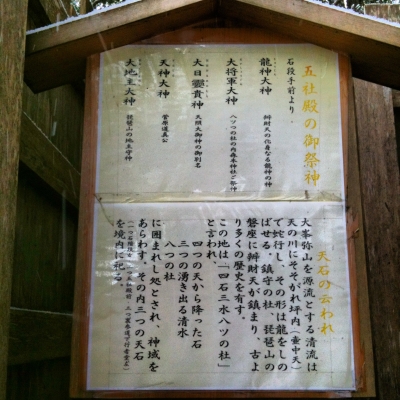 五社殿の御祭神
石段手前より、
龍神大神
辨財天の化身なる龍神の神
大将軍大神
八ツの社の内森本神社ご祭神
大日孁貴神
天照大御神の御別名
天神大神
菅原道真公
大地主大神
琵琶山の地主守神
天石の云われ
大峯弥山を源流とする清流は
天の川にそそがれ坪内(壷中天)
で蛇行し、その形は龍をしの
ばせる。鎮守の社、琵琶山の
磐座に辨財天が鎮まり、古よ
り多くの歴史を有す。
この地は「四石三水八ツの社」
と言われ、
四つの天から降った石
三つの湧き出る清水
八つの社
に囲まれし処とされ、神域を
あらわす。その内三つの天石
を境内に祀る。